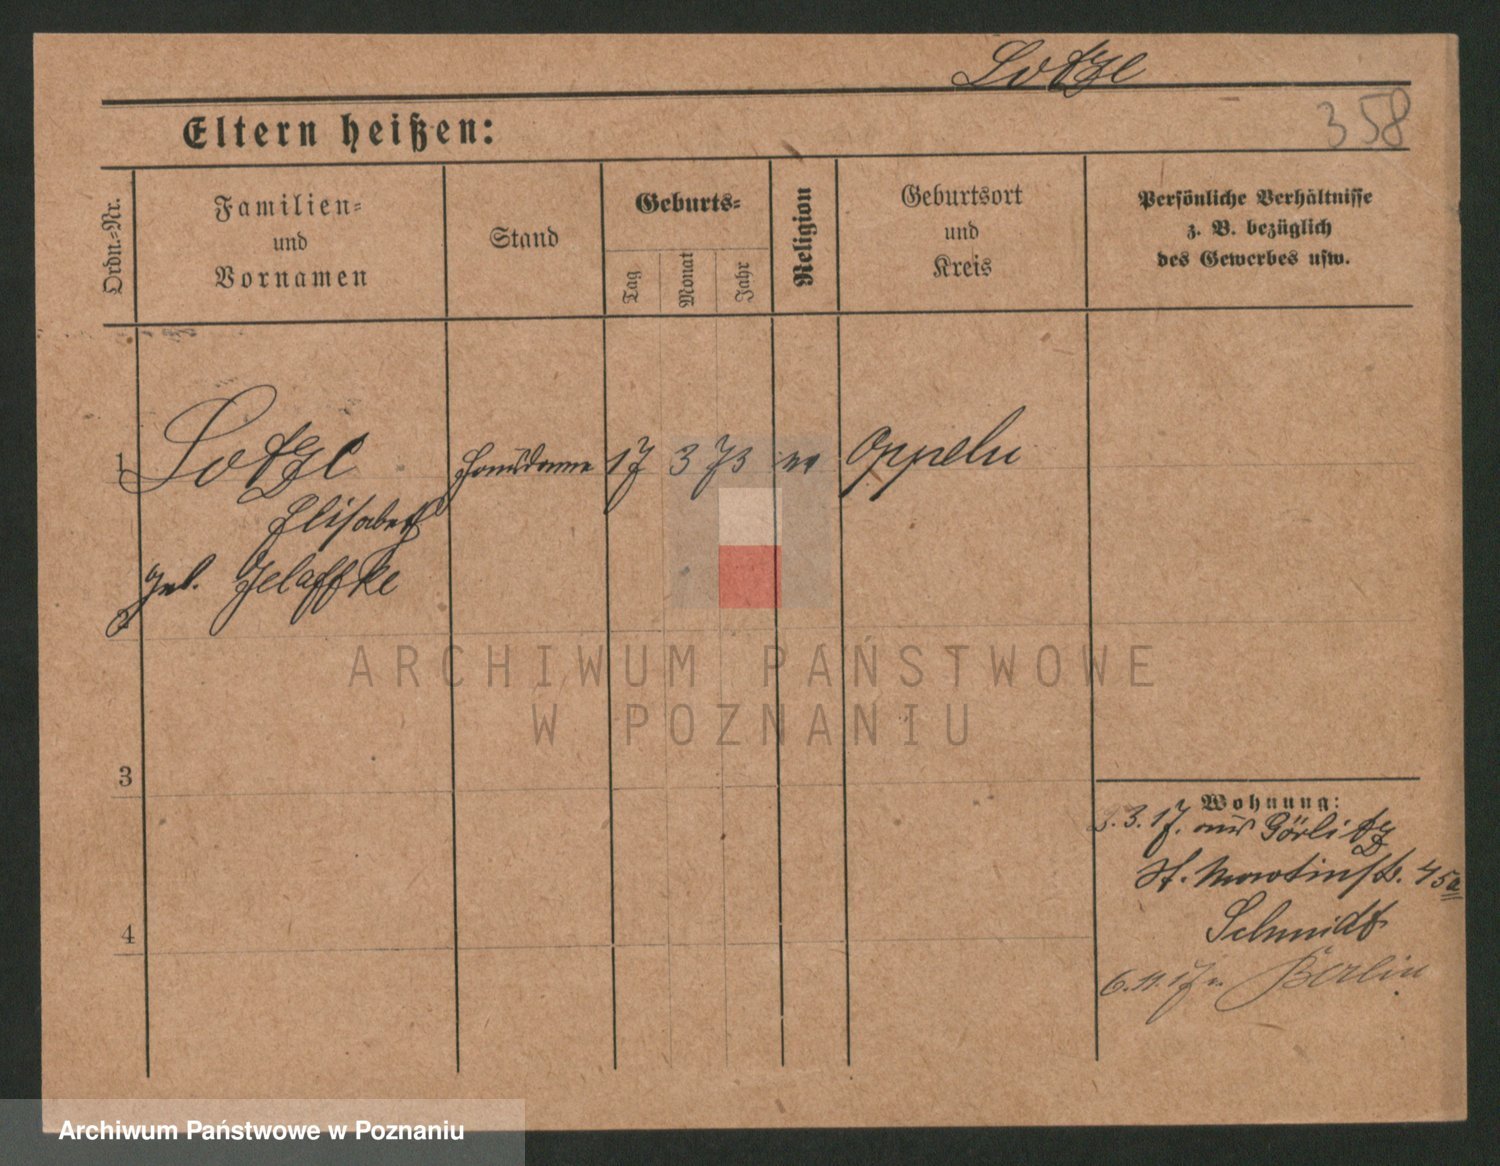 Lotze
358
Eltern heißen:
Ordn.-Nr.
Familien-
und
Vornamen
Stand
Geburts-
Tag
Monat
Jahr
Religion
Geburtsort
und
Kreis
Persönliche Verhältnisse
z. B. bezüglich
des Gewerbes usw.
1 Lotze Hausdame 17 3 73 ev Oppeln
Elisabeth
geb. Jelaffke
2
ARCHIWUM PAŃSTWOWE
W POZNANIU
3
4
Wohnung:
3.3.17. aus Görlitz
St. Martinstr. 45a
Schmidt
6.11.17 n Berlin
Archiwum Państwowe w Poznaniu